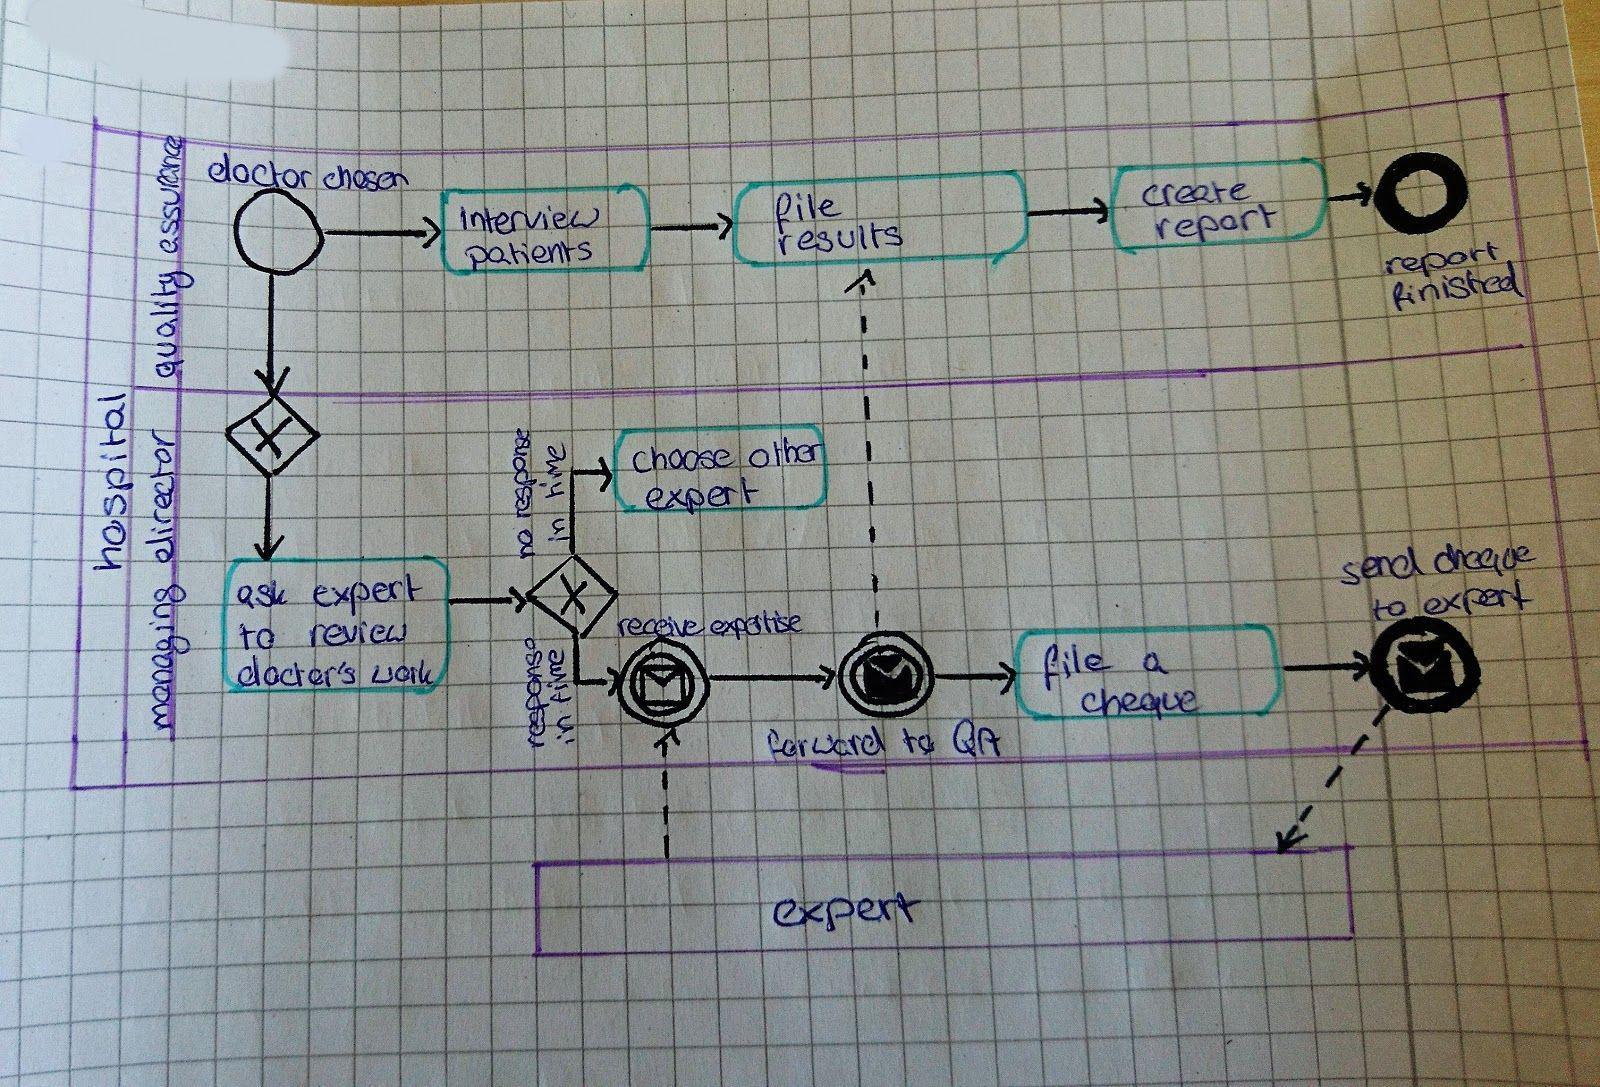 hospital
quality assurance
managing director
doctor chosen
interview
patients
file
results
create
report
report
finished
choose other
expert
no response
in time
ask expert
to review
doctor's work
response
in time
receive expertise
forward to QA
file a
cheque
send cheque
to expert
expert